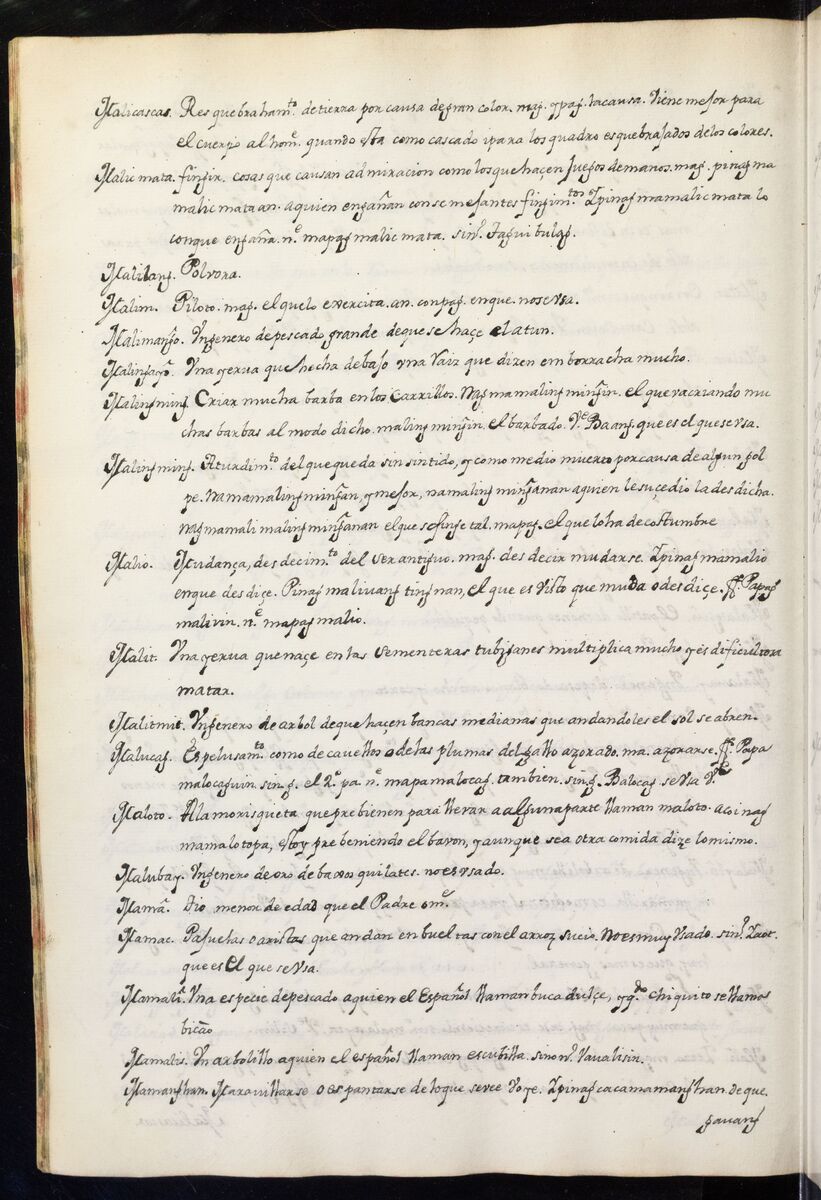 Malicascas. Resquebrahamto de tierra por causa de gran color. mag. ypag. lacausa. Viene mejor para
el cuerpo al home quando esta como cascado ypara los quadro esquebrajados de los colores.
Malic mata. fingir. cosas que causan admiracion como los que haçen Juegos de manos. mag. pinag ma
malic mataan. aquien engañan con semejantes fingimtos Ypinag mamalic mata lo
con que engaña. ne mapag malic mata. sino Tagui bulag.
Malilang. Polvora.
Malim. Piloto. mag. el que lo exercita. an. con pag. en que. nose vsa.
Malimango. Vn genero de pescado grande de que se haçe el atun.
Vna yerua que hecha debajo vna Raiz que dizen emborracha mucho.
Maling ming. Criar mucha barba en los Carrillos. Nag mamaling mingin. el que va criando mu
chas barbas al modo dicho. maling mingin. el barbado. Ve Baang. que es el que se vsa.
Maling ming. Aturdimto del que queda sin sintido, y como medio muerto por causa de algun gol
pe. na mamaling mingan, y mejor, na maling minganan aquien le suçedio la desdicha.
nag mamali maling minganan el que se finje tal. mapag. el que lo ha de costumbre
Malio. Mudança, desdecimto del ser antiguo. mag. desdecir mudarse. Ypinag mamalio
en que desdiçe. Pinag malivang tingnan, el que es Visto que muda o desdiçe. ff. Papag
malivin. ne mapag malio.
Malit. Vna yerua que naçe en las sementeras tubiganes multiplica mucho y es dificultora
matar.
Malitmit. Vn genero de arbol de que haçen bancas medianas que andandoles el sol se abren.
Malucag. Espelusamto como de cauellos o de las plumas del gallo azorado. ma. azorarse. ff. Papa
malocaguin sing. el 2o pa. ne mapamalocag. tambien. sing. Balocag. se vsa Ve
Maloto. Alla morisqueta que prebienen para lleuar a alguna parte llaman maloto. aco i nag
mamalotopa, estoy prebeniendo el baron, y aunque sea otra comida dize lo mismo.
Malubay. Vn genero de oro de baxos quilates. no es vsado.
Mama. Tio menor de edad que el Padre ome
Mamac. Pajuelas o aristas que andan enbueltas con el arroz sucio. no es muy Vsado. sino Yaot.
que es el que se vsa.
Vna especie de pescado aquien el Español llaman buca dulçe, yqdo chiquito se llamas
bicao
Mamalis. Vn arbolillo aquien el español llaman escubilla. sinono Vaualisin.
Mamanghan. Marauillarse o espantarse de lo que se vee Voye. Ypinag cacamamanghan. de que.
gauang